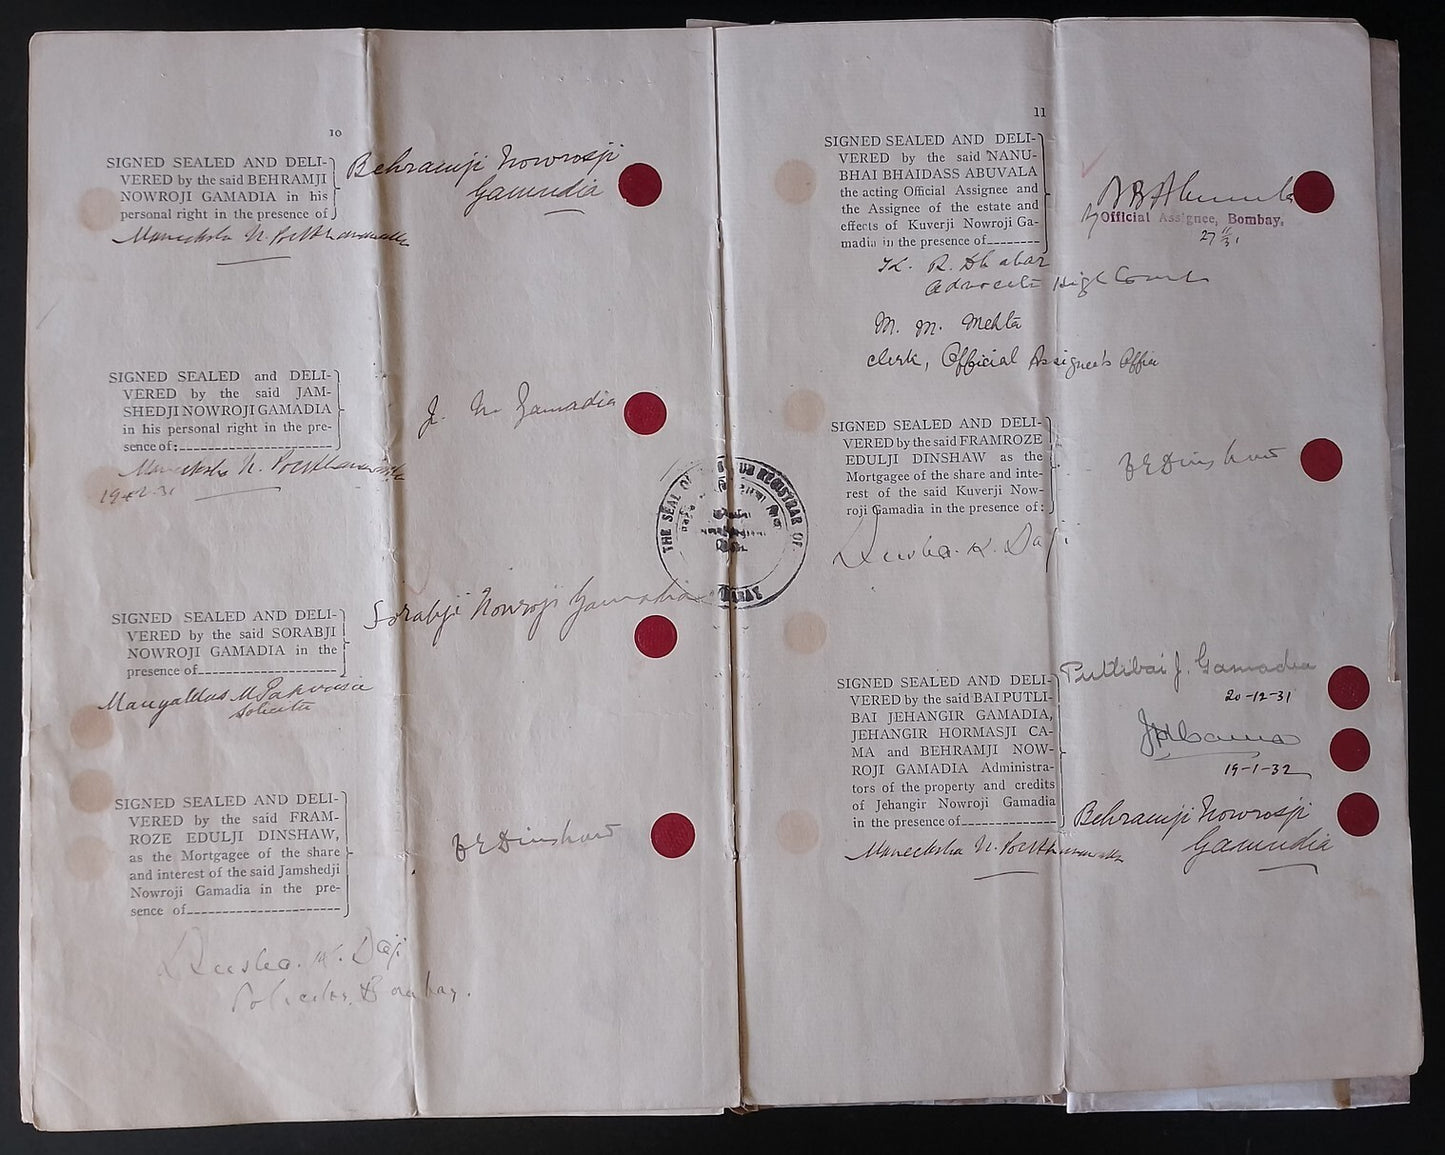 10
SIGNED SEALED AND DELI-
VERED by the said BEHRAMJI
NOWROJI GAMADIA in his
personal right in the presence of
Behramji Nowrosji
Gamadia
Maneksha N.
SIGNED SEALED and DELI-
VERED by the said JAM-
SHEDJI NOWROJI GAMADIA
in his personal right in the pre-
sence of:
J. N. Gamadia
Maneksha N.
19-12-31
SIGNED SEALED AND DELI-
VERED by the said SORABJI
NOWROJI GAMADIA in the
presence of
Sorabji Nowroji Gamadia
Mangaldas M. Pakvasa
Solicitor
SIGNED SEALED AND DELI-
VERED by the said FRAM-
ROZE EDULJI DINSHAW,
as the Mortgagee of the share
and interest of the said Jamshedji
Nowroji Gamadia in the pre-
sence of
F E Dinshaw
K. Daji
Solicitor, Bombay.
THE SEAL OF SUB REGISTRAR OF
11
SIGNED SEALED AND DELI-
VERED by the said NANU-
BHAI BHAIDASS ABUVALA
the acting Official Assignee and
the Assignee of the estate and
effects of Kuverji Nowroji Ga-
madia in the presence of
Official Assignee, Bombay.
27 11 31
K. R. Dhabar
Advocate High Court
M. M. Mehta
clerk, Official Assignee's Office
SIGNED SEALED AND DELI-
VERED by the said FRAMROZE
EDULJI DINSHAW as the
Mortgagee of the share and inte-
rest of the said Kuverji Now-
roji Gamadia in the presence of:
F E Dinshaw
K. Daji
SIGNED SEALED AND DELI-
VERED by the said BAI PUTLI-
BAI JEHANGIR GAMADIA,
JEHANGIR HORMASJI CA-
MA and BEHRAMJI NOW-
ROJI GAMADIA Administra-
tors of the property and credits
of Jehangir Nowroji Gamadia
in the presence of
Putlibai J. Gamadia
20-12-31
JHCama
19-1-32
Behramji Nowrosji
Gamadia
Maneksha N.